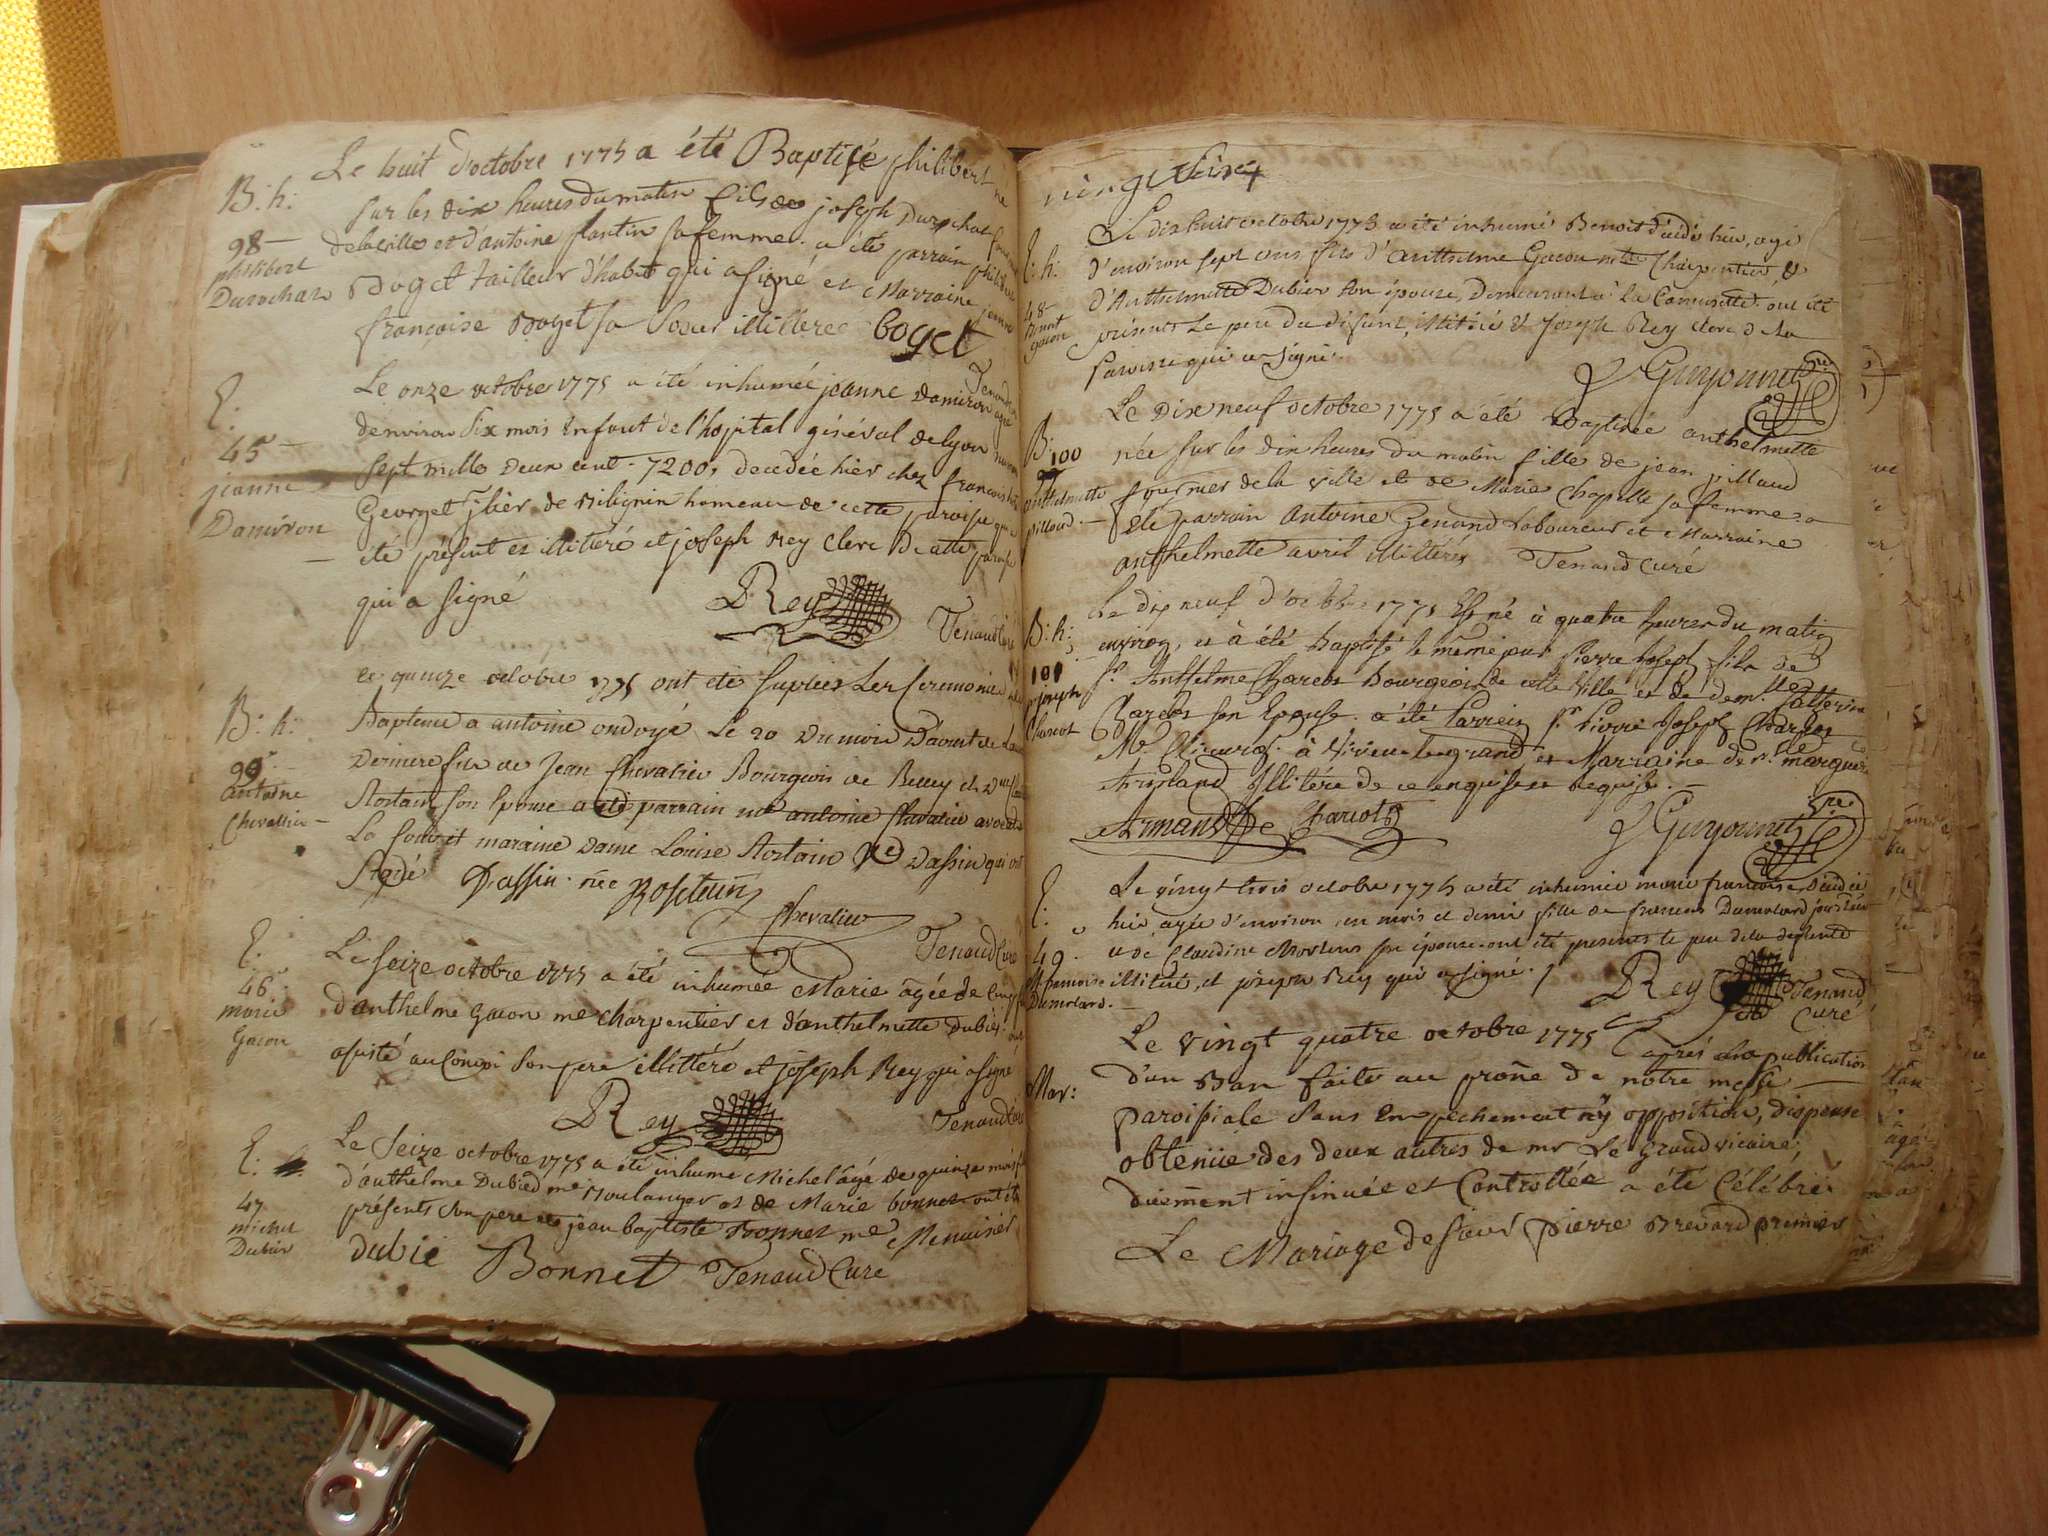 Le huit d'octobre 1775 a été Baptisé philibert né
B. h.
sur les dix heures du matin fils de joseph Durochat
98
philibert
Durochat
de la ville et d'antoine plantin sa femme. a été parrain philibert
Boget tailleur d'habit qui a signé et Marraine jeanne
françoise Boget sa Soeur illiterée boget
Tenaud
E.
45
jeanne
Damiron
Le onze octobre 1775 a été inhumée jeanne Damiron agée
d'environ Six mois Enfant de l'hopital général de lyon
sept mille deux cent. 7200, decedée hier chez francois
Georget de Billignin hameau de cette paroisse qui a
été présent et illiteré et joseph Rey Clerc de cette paroisse
qui a signé
Rey
Tenaud Curé
B. h.
99
antoine
Chevallier
ce quinze octobre 1775 ont été suplées Les Ceremonies du
Bapteme a antoine ondoyé Le 20 Du mois D'aoust de l'année
Derniere fils de Jean Chevalier Bourgeois de Belley et de Dme
Rostain son Epouse a été parrain mr antoine Chevalier avocat
La Cour et maraine Dame Louise Rostain Ve Dassin qui ont
signé Dassin née Rostain
Chevalier
Tenaud Curé
E.
46
marie
Gacon
Le seize octobre 1775 a été inhumée Marie agée de cinq
d'anthelme Gacon me charpentier et d'anthelmette Dubiez. ont
assisté au Convoi son pere illittéré et joseph Rey qui a signé
Rey
Tenaud Curé
E.
47
michel
Dubiez
Le seize octobre 1775 a été inhumé Michel agé de quinze mois fils
d'anthelme Dubied me Boulanger et de Marie bonnet ont été
présents son pere et jean baptiste Bonnet me Menuisier
dubie Bonnet Tenaud Curé
vingt
E. h.
48
Benoit
gacon
Le dix huit octobre 1775 a été inhumé Benoit décédé hier, agé
d'environ sept ans fils d'Anthelme Gacon me Charpentier &
d'Anthelmette Dubier son épouse, Demeurant à La ont été
présents Le pere du défunt, illitéré & Joseph Rey clerc de la
Paroisse qui a signé.
J Guyonnet
B. 100
anthelmette
pilloud
Le Dix neuf octobre 1775 a été Baptisée anthelmette
née sur les dix heures du matin fille de jean pillaud
fournier de la ville et de Marie Chapelle sa femme. a
été parrain antoine Genand laboureur et Marraine
anthelmette avril illittérés Tenaud Curé
B. h.
101
p. joseph
Charcot
Le dix neuf d'octobre 1775 Est né à quatre heures du matin
environ, et à été baptisé le même jour Pierre Joseph fils de
Sr. Anthelme Charcot Bourgeois de cette ville et de demlle Catherine
son Epouse. a été Parrein Sr. Pierre Joseph
Me Chirurg. à Virieu le grand et Marraine de marguerite
Illitere de ce enquise et requise.
Armand Charcot
J Guyonnet
E.
49
M. francoise
Dumolard
Le vingt trois octobre 1775 a été inhumée marie francoise, décédée
hier agée d'environ un mois et demi fille de francois Dumolard journalier
& de Claudine son épouse. ont été présents le pere de la defunte
illitéré, et joseph Rey qui a signé.
Rey Tenaud
Curé
Mar:
Le vingt quatre octobre 1775 aprés la publication
d'un Ban faite au prone de notre messe
paroissiale sans Empechement ny opposition, dispense
obtenüe des deux autres de mr Le Grand vicaire,
duement insinuée et Controllée a été Célébré
Le Mariage de sieur Pierre Brevard premier